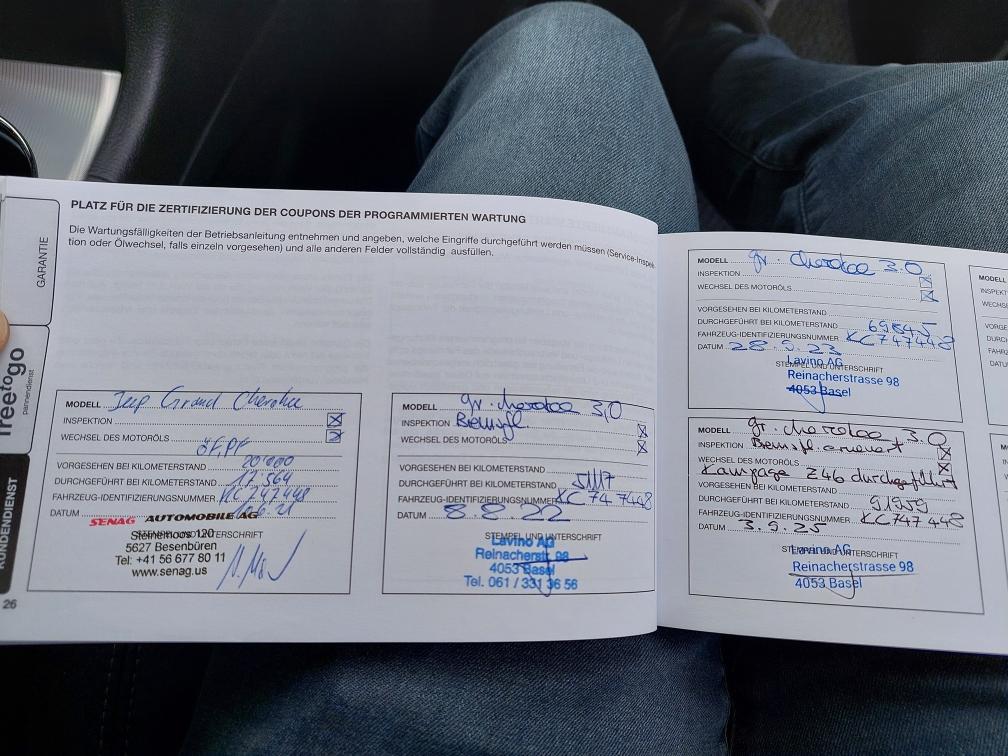 PLATZ FÜR DIE ZERTIFIZIERUNG DER COUPONS DER PROGRAMMIERTEN WARTUNG
Die Wartungsfälligkeiten der Betriebsanleitung entnehmen und angeben, welche Eingriffe durchgeführt werden müssen (Service-Inspek-
tion oder Ölwechsel, falls einzeln vorgesehen) und alle anderen Felder vollständig ausfüllen.
GARANTIE
freetogo
pannendienst
KUNDENDIENST
26
MODELL Jeep Grand Cherokee
INSPEKTION
WECHSEL DES MOTORÖLS
öF, PF
VORGESEHEN BEI KILOMETERSTAND 20'000
DURCHGEFÜHRT BEI KILOMETERSTAND 17'564
FAHRZEUG-IDENTIFIZIERUNGSNUMMER KC747448
DATUM
SENAG AUTOMOBILE AG
STEMPEL UND UNTERSCHRIFT
Steinenmoos 120
5627 Besenbüren
Tel: +41 56 677 80 11
www.senag.us
MODELL gr. cherokee 3,0
INSPEKTION Bremsfl.
WECHSEL DES MOTORÖLS
VORGESEHEN BEI KILOMETERSTAND
DURCHGEFÜHRT BEI KILOMETERSTAND 51117
FAHRZEUG-IDENTIFIZIERUNGSNUMMER KC747448
DATUM 8.8.22
STEMPEL UND UNTERSCHRIFT
Lavino AG
Reinacherstr. 98
4053 Basel
Tel. 061 / 331 36 56
MODELL gr. cherokee 3.0
INSPEKTION
WECHSEL DES MOTORÖLS
VORGESEHEN BEI KILOMETERSTAND
DURCHGEFÜHRT BEI KILOMETERSTAND 69845
FAHRZEUG-IDENTIFIZIERUNGSNUMMER KC747448
DATUM 28.9.23
STEMPEL UND UNTERSCHRIFT
Lavino AG
Reinacherstrasse 98
4053 Basel
MODELL gr. cherokee 3.0
INSPEKTION Bremsfl. erneuert
WECHSEL DES MOTORÖLS
Kampagne Z46 durchgeführt
VORGESEHEN BEI KILOMETERSTAND
DURCHGEFÜHRT BEI KILOMETERSTAND 91959
FAHRZEUG-IDENTIFIZIERUNGSNUMMER KC747448
DATUM 3.9.25
STEMPEL UND UNTERSCHRIFT
Lavino AG
Reinacherstrasse 98
4053 Basel
MODELL